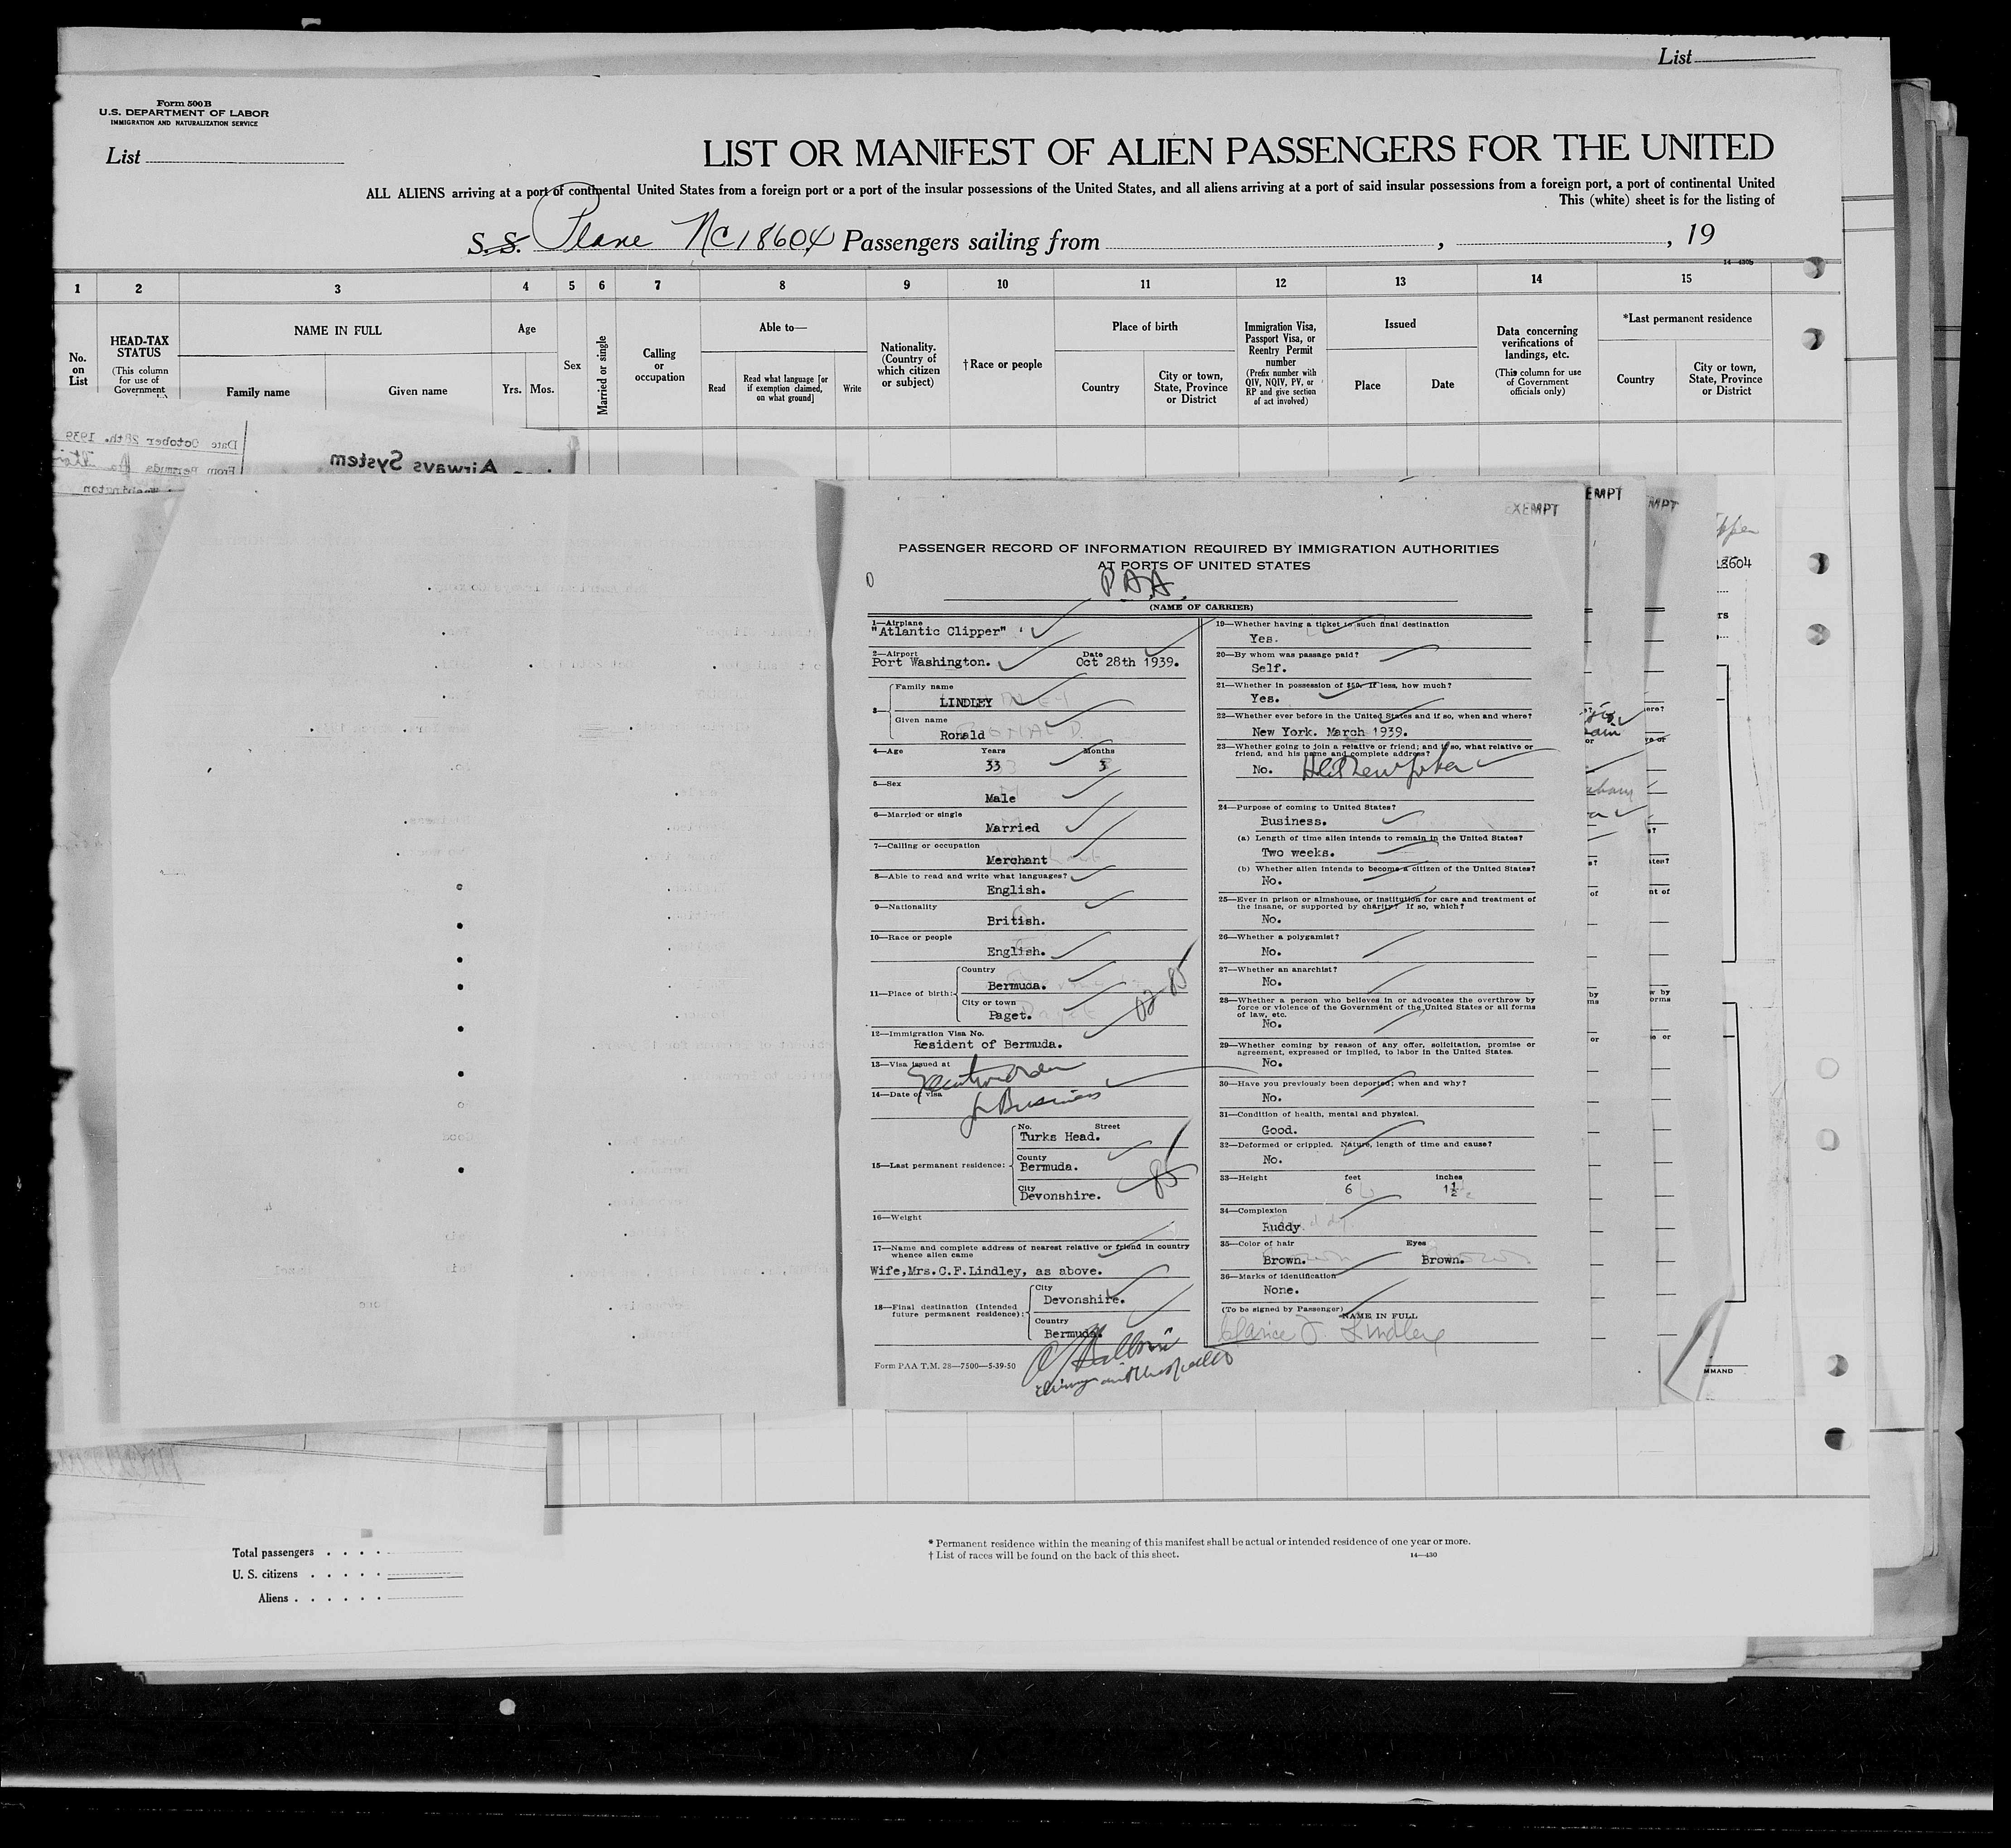 List
Form 500 B
U.S. DEPARTMENT OF LABOR
IMMIGRATION AND NATURALIZATION SERVICE
List
LIST OR MANIFEST OF ALIEN PASSENGERS FOR THE UNITED
ALL ALIENS arriving at a port of continental United States from a foreign port or a port of the insular possessions of the United States, and all aliens arriving at a port of said insular possessions from a foreign port, a port of continental United
This (white) sheet is for the listing of
S.S. Plane NC 18604 Passengers sailing from , , 19
14—430b
1 2 3 4 5 6 7 8 9 10 11 12 13 14 15
No. on List
HEAD-TAX STATUS
(This column for use of Government
NAME IN FULL
Family name Given name
Age
Yrs. Mos.
Sex
Married or single
Calling or occupation
Able to—
Read
Read what language [or if exemption claimed, on what ground]
Write
Nationality. (Country of which citizen or subject)
† Race or people
Place of birth
Country
City or town, State, Province or District
Immigration Visa, Passport Visa, or Reentry Permit number
(Prefix number with QIV, NQIV, PV, or RP and give section of act involved)
Issued
Place Date
Data concerning verifications of landings, etc.
(This column for use of Government officials only)
*Last permanent residence
Country
City or town, State, Province or District
Date October 28th. 1939
From Bermuda
Washington
Airways System
EXEMPT
EMPT
MPT
18604
PASSENGER RECORD OF INFORMATION REQUIRED BY IMMIGRATION AUTHORITIES
AT PORTS OF UNITED STATES
P.A.A.
(NAME OF CARRIER)
1—Airplane
"Atlantic Clipper"
2—Airport Date
Port Washington. Oct 28th 1939.
3—
Family name
LINDLEY
Given name
Ronald
4—Age Years Months
33 3
5—Sex
Male
6—Married or single
Married
7—Calling or occupation
Merchant
8—Able to read and write what languages?
English.
9—Nationality
British.
10—Race or people
English.
11—Place of birth:
Country
Bermuda.
City or town
Paget.
12—Immigration Visa No.
Resident of Bermuda.
13—Visa issued at
14—Date of visa
for Business
15—Last permanent residence:
No. Street
Turks Head.
County
Bermuda.
City
Devonshire.
85
16—Weight
17—Name and complete address of nearest relative or friend in country
whence alien came
Wife,Mrs.C.F.Lindley, as above.
18—Final destination (Intended
future permanent residence):
City
Devonshire.
Country
Bermuda.
Form PAA T.M. 28—7500—5-39-50
19—Whether having a ticket to such final destination
Yes.
20—By whom was passage paid?
Self.
21—Whether in possession of $50. If less, how much?
Yes.
22—Whether ever before in the United States and if so, when and where?
New York. March 1939.
23—Whether going to join a relative or friend; and if so, what relative or
friend, and his name and complete address?
No.
24—Purpose of coming to United States?
Business.
(a) Length of time alien intends to remain in the United States?
Two weeks.
(b) Whether alien intends to become a citizen of the United States?
No.
25—Ever in prison or almshouse, or institution for care and treatment of
the insane, or supported by charity? If so, which?
No.
26—Whether a polygamist?
No.
27—Whether an anarchist?
No.
28—Whether a person who believes in or advocates the overthrow by
force or violence of the Government of the United States or all forms
of law, etc.
No.
29—Whether coming by reason of any offer, solicitation, promise or
agreement, expressed or implied, to labor in the United States.
No.
30—Have you previously been deported; when and why?
No.
31—Condition of health, mental and physical.
Good.
32—Deformed or crippled. Nature, length of time and cause?
No.
33—Height feet inches
6 1½
34—Complexion
Ruddy
35—Color of hair Eyes
Brown. Brown.
36—Marks of identification
None.
(To be signed by Passenger) NAME IN FULL
Clarice F. Lindley
MMAND
Total passengers . . . .
U. S. citizens . . . . .
Aliens . . . . . .
* Permanent residence within the meaning of this manifest shall be actual or intended residence of one year or more.
† List of races will be found on the back of this sheet. 14—430